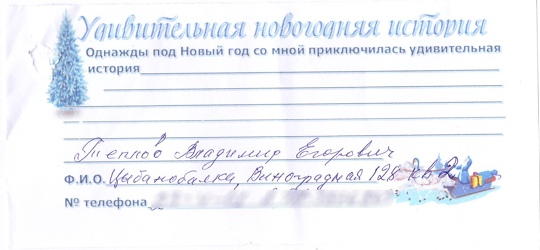 Удивительная новогодняя история
Однажды под Новый год со мной приключилась удивительная
история
Теплов Владимир Егорович
Ф.И.О. Цыбанобалка, Виноградная 128 кв 2
№ телефона